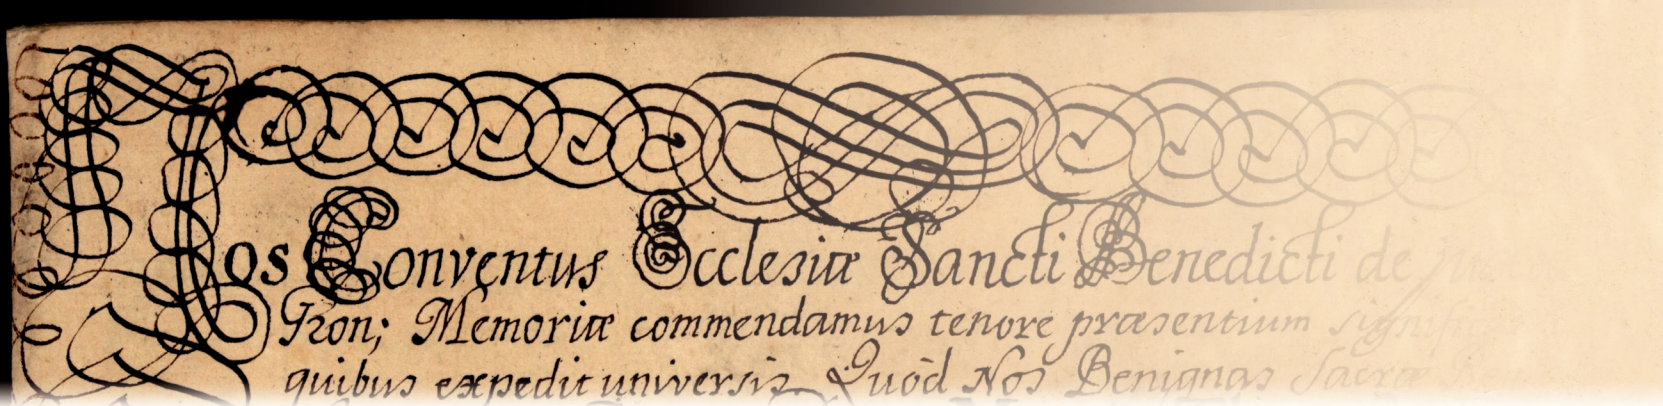 Nos Conventus Ecclesiæ Sancti Benedicti de
Gron; Memoriæ commendamus tenore præsentium
quibus expedit universis Quòd Nos Benignas Sacræ